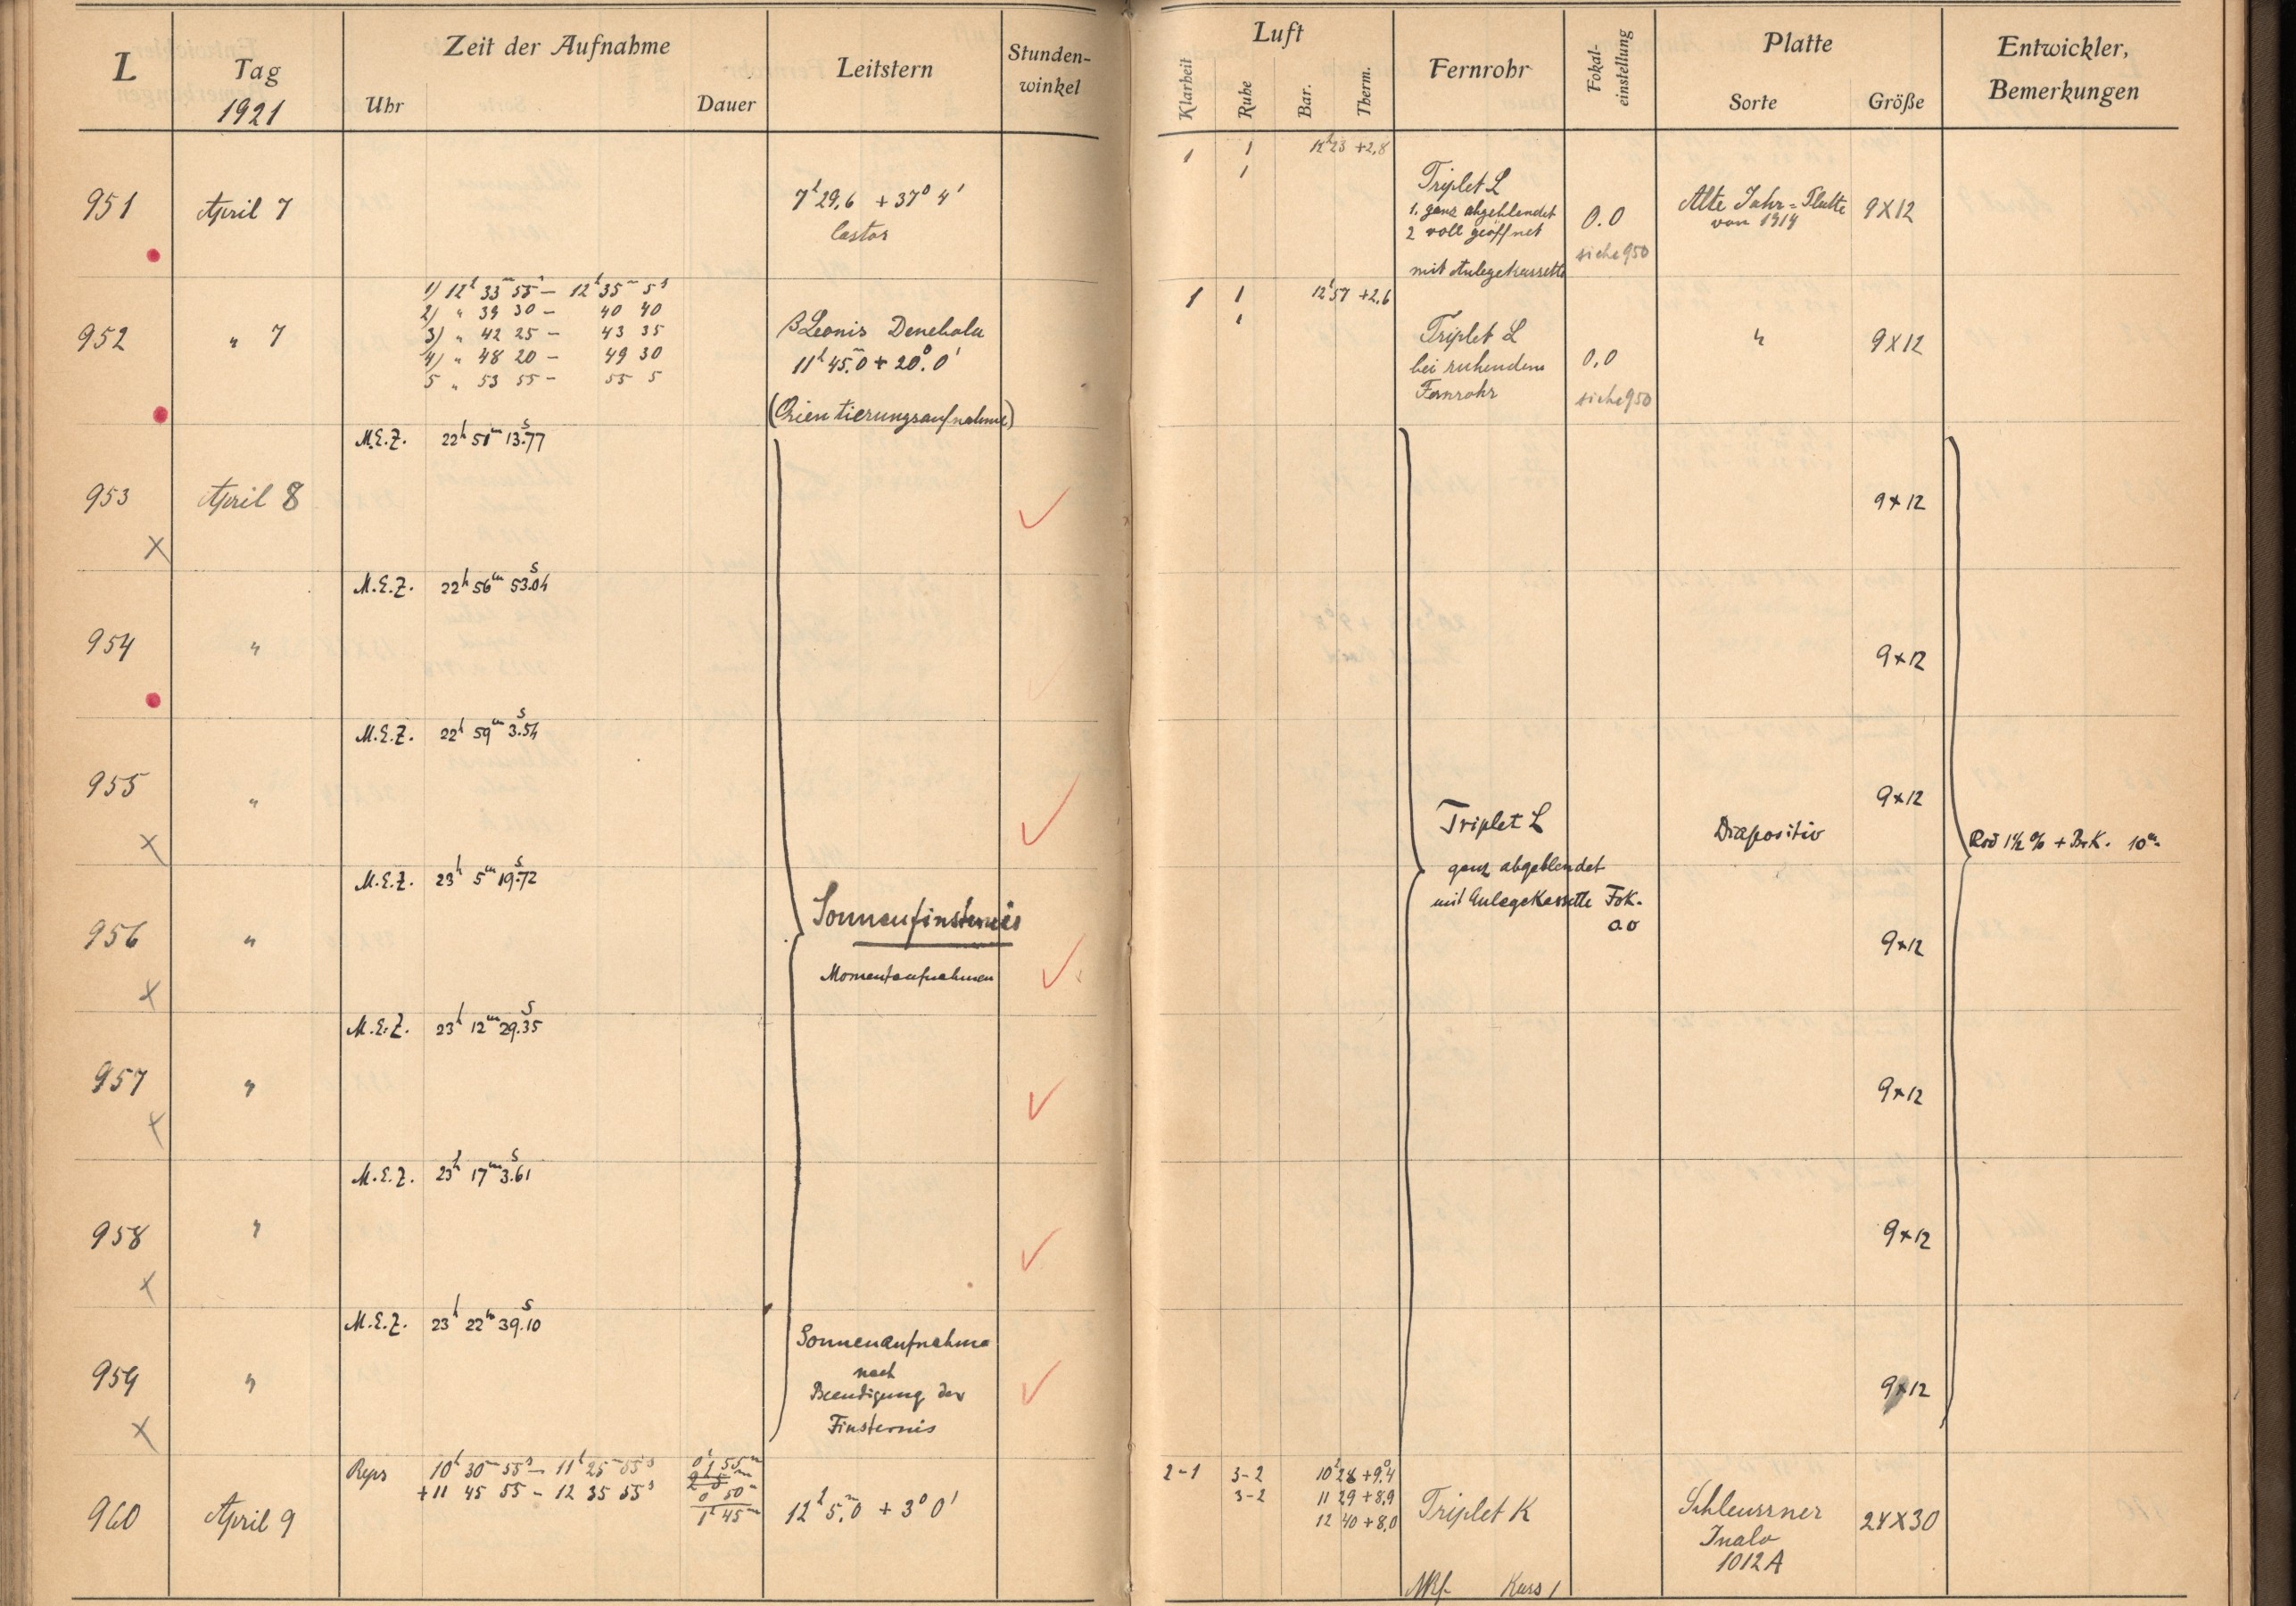 L
Tag
1921
Zeit der Aufnahme
Uhr
Dauer
Leitstern
Stunden-
winkel
Luft
Klarheit
Ruhe
Bar.
Therm.
Fernrohr
Fokal-
einstellung
Platte
Sorte
Größe
Entwickler,
Bemerkungen
951
April 7
7h 29.6 + 37° 4'
Castor
1
1
1
12h23 +2,8
Triplet L
1. ganz abgeblendet
2 voll geöffnet
mit Anlegekassette
0.0
siehe 950
Alte Jahr=Platte
von 1914
9X12
952
" 7
1) 12h 33m 55s — 12h 35m 5s
2) " 39 30 — 40 40
3) " 42 25 — 43 35
4) " 48 20 — 49 30
5 " 53 55 — 55 5
β Leonis Denebola
11h 45.m0 + 20.° 0'
(Orientierungsaufnahme)
1
1
12h57 +2,6
Triplet L
bei ruhendem
Fernrohr
0,0
siehe 950
"
9X12
953
April 8
M.E.Z. 22h 51m 13.s77
9x12
954
"
M.E.Z. 22h 56m 53.s04
9x12
955
"
M.E.Z. 22h 59m 3.s54
9x12
956
"
M.E.Z. 23h 5m 19.s72
Sonnenfinsternis
Momentaufnahmen
Triplet L
ganz abgeblendet
mit Anlegekassette Fok.
0.0
Diapositiv
9x12
Rod 1½ % + Br.K. 10m.
957
"
M.E.Z. 23h 12m 29.s35
9x12
958
"
M.E.Z. 23h 17m 3.s61
9x12
959
"
M.E.Z. 23h 22m 39.s10
Sonnenaufnahme
nach
Beendigung der
Finsternis
9x12
960
April 9
Reps
10h 30m 55s — 11h 25m 55s
+11 45 55 — 12 35 55s
0h 55m
0 50m
1h 45m
12h 5.m0 + 3° 0'
2-1
3-2
3-2
10h 28 +9.°4
11 29 +8,9
12 40 +8,0
Triplet K
Kass 1
Schleussner
Inalo
1012A
24X30